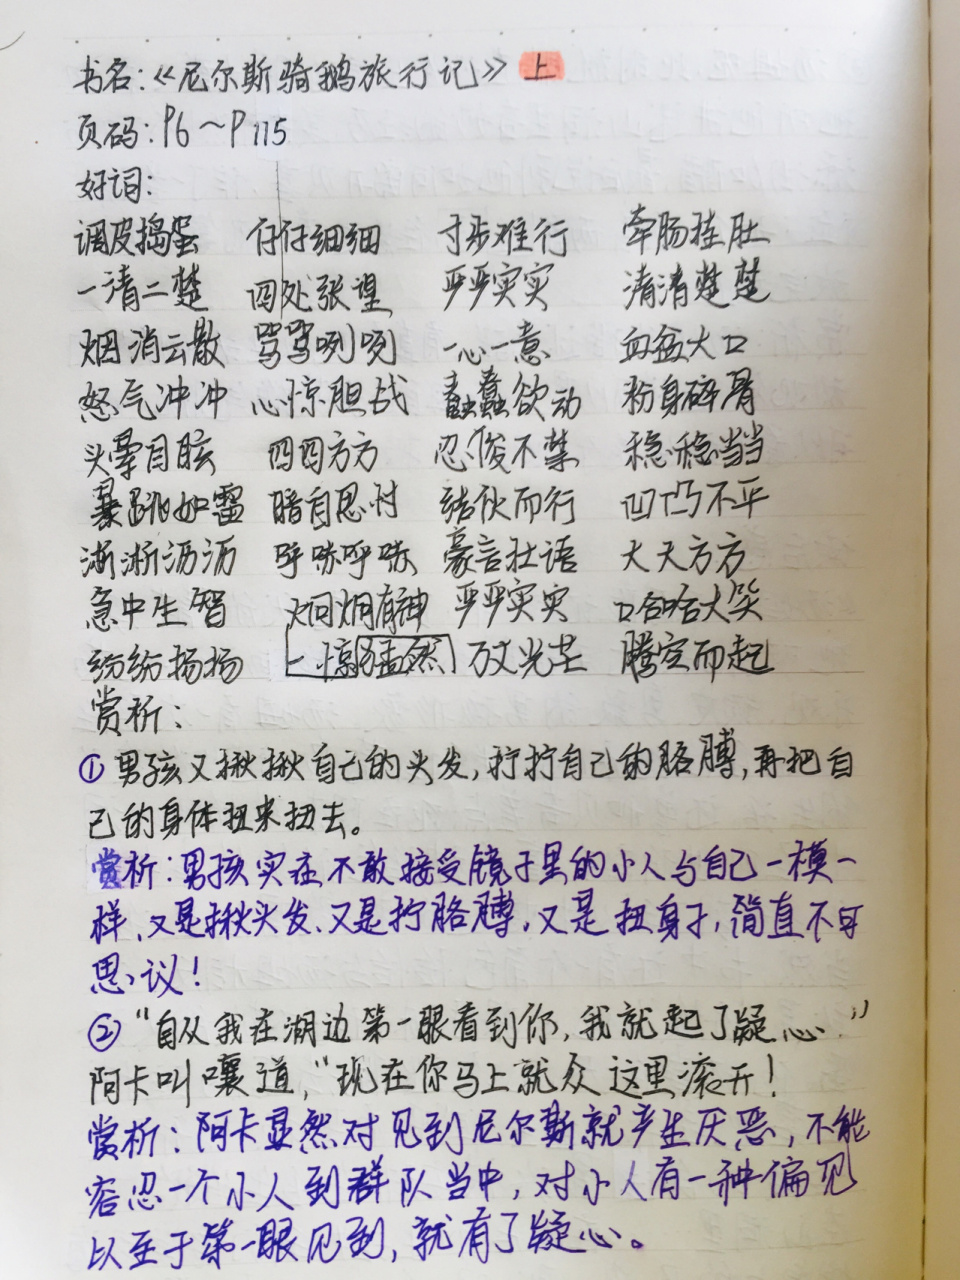 书名:《尼尔斯骑鹅旅行记》 上
页码:P6~P115
好词:
调皮捣蛋 仔仔细细 寸步难行 牵肠挂肚
一清二楚 四处张望 严严实实 清清楚楚
烟消云散 骂骂咧咧 一心一意 血盆大口
怒气冲冲 心惊胆战 蠢蠢欲动 粉身碎骨
头晕目眩 四四方方 忍俊不禁 稳稳当当
暴跳如雷 暗自思忖 结伙而行 凹凸不平
淅淅沥沥 呼哧呼哧 豪言壮语 大大方方
急中生智 炯炯有神 严严实实 哈哈大笑
纷纷扬扬 猛然一惊 万丈光芒 腾空而起
赏析:
①男孩又揪揪自己的头发,拧拧自己的胳膊,再把自
己的身体扭来扭去。
赏析:男孩实在不敢接受镜子里的小人与自己一模一
样、又是揪头发、又是拧胳膊,又是扭身子,简直不可
思议!
②“自从我在湖边第一眼看到你,我就起了疑心。”
阿卡叫嚷道,“现在你马上就从这里滚开!
赏析:阿卡显然对见到尼尔斯就产生厌恶,不能
容忍一个小人到群队当中,对小人有一种偏见
以至于第一眼见到,就有了疑心。